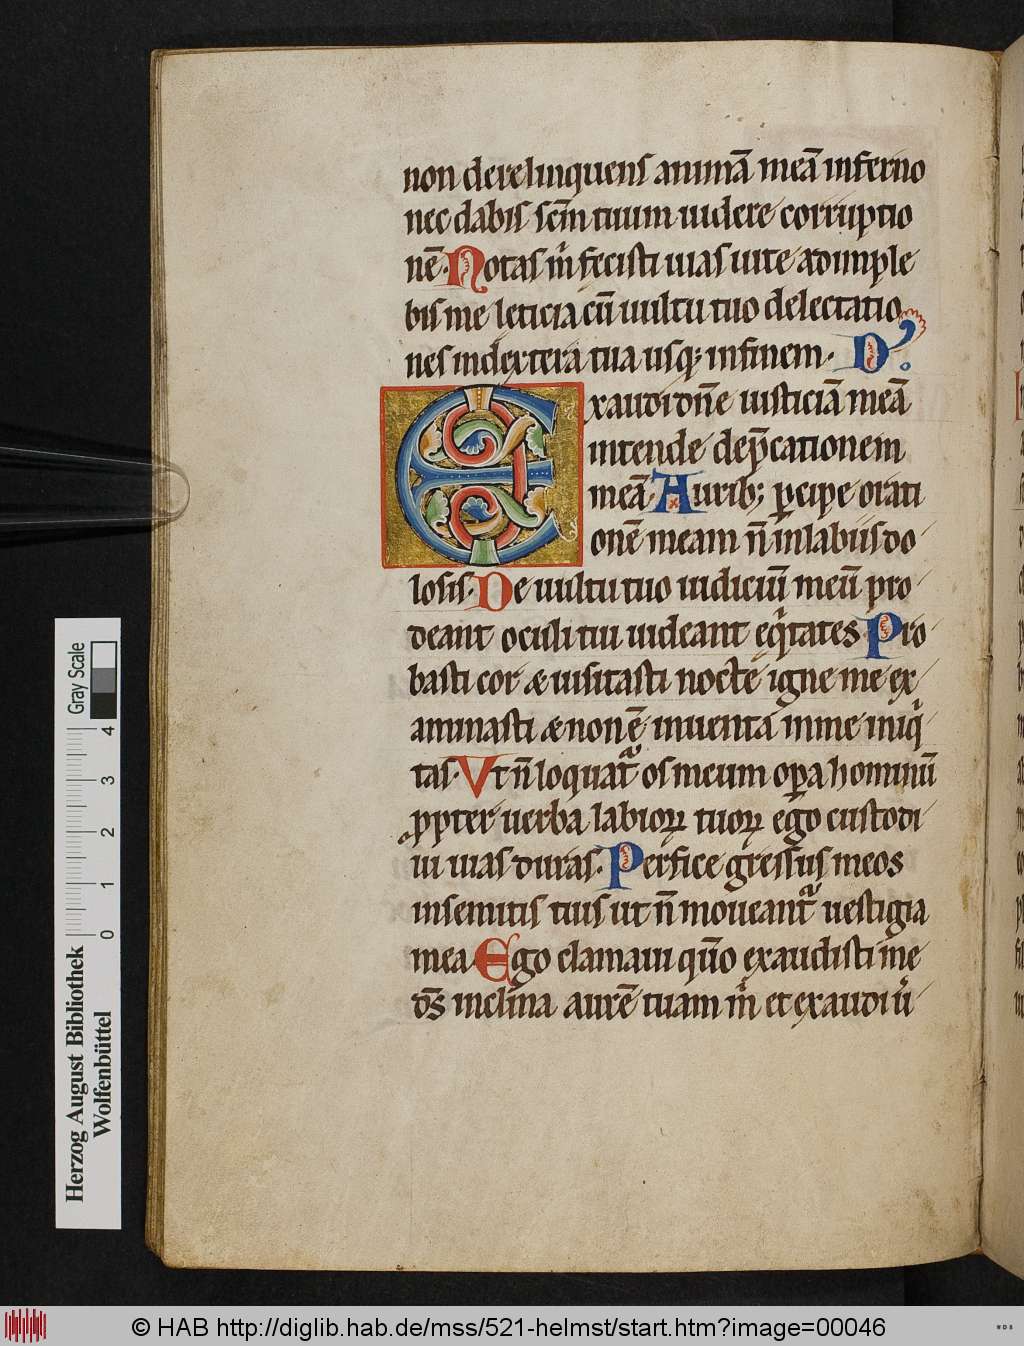 non derelinquens animā meā inferno
nec dabis scm̄ tuum uidere corruptio
nē. Notas m̄ fecisti uias uite adimple
bis me leticia cū uultu tuo delectatio
nes in dextera tua usq; in finem. D̾
Exaudi dn̄e iusticiā meā
intende dep̄cationem
meā. Aurib; p̄cipe orati
onē meam n̄ in labiis do
losis. De uultu tuo iudiciū meū pro
deant oculi tui uideant eqͥtates Pro
basti cor & uisitasti nocte igne me ex
aminasti & non ē inuenta in me iniqͥ
tas. Vt n̄ loquatᷣ os meum opa hominū
ꝓpter uerba labioꝝ tuoꝝ ego custodi
ui uias duras. Perfice gressus meos
in semitis tuis ut n̄ moueantᷣ uestigia
mea Ego clamaui qm̄o exaudisti me
ds̄ inclina aurē tuam m̄ et exaudi ū
Gray Scale
4
3
2
1
0
Herzog August Bibliothek
Wolfenbüttel
© HAB http://diglib.hab.de/mss/521-helmst/start.htm?image=00046